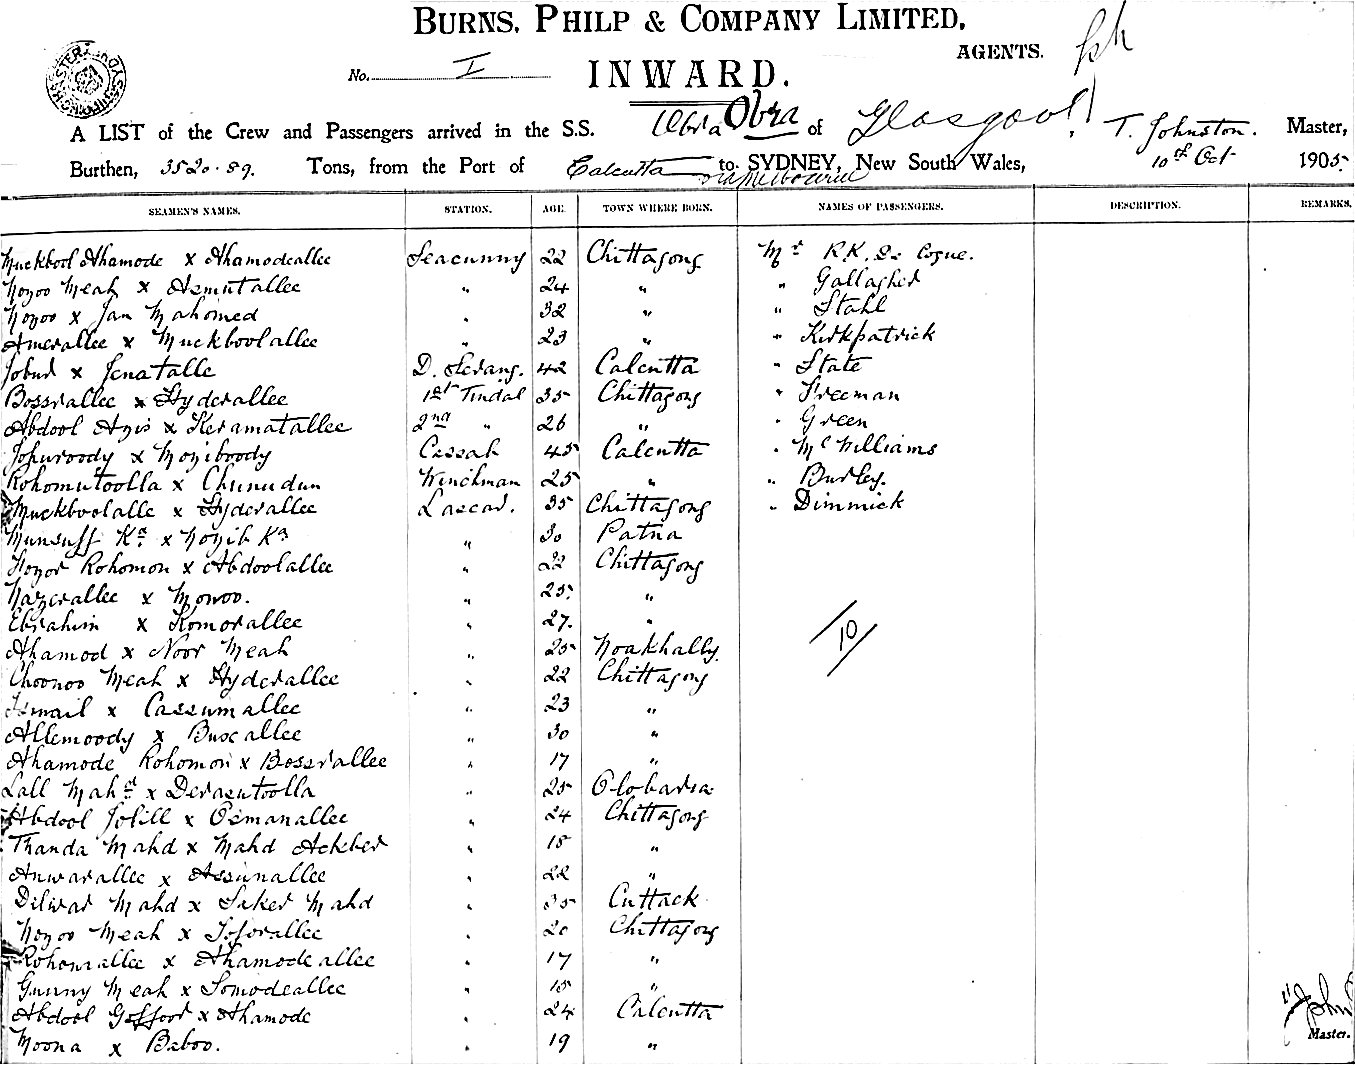 BURNS, PHILP & COMPANY LIMITED,
AGENTS.
No. I
INWARD.
A LIST of the Crew and Passengers arrived in the S.S. Obra Obra of Glasgow, T. Johnston. Master,
Burthen, 3520.89. Tons, from the Port of Calcutta to SYDNEY, New South Wales, 10th Oct 1905.
via Melbourne
SEAMEN'S NAMES. STATION. AGE. TOWN WHERE BORN. NAMES OF PASSENGERS. DESCRIPTION. REMARKS.
Muckbool Ahamode x Ahamodeallee Seacunny 22 Chittagong Mr R.K. Cogue.
Noyoo Meah x Asmutallee " 24 " " Gallagher
Noyoo x Jan Mahomed " 32 " " Stahl
Amerallee x Muckboolallee " 23 " " Kirkpatrick
Jobur x Jenatalle D. Serang. 42 Calcutta " State
Bossrallee x Hyderallee 1st Tindal 35 Chittagong " Freeman
Abdool Azis x Keramatallee 2nd " 26 " " Green
Jopuroody x Moyiboody Cassab 45 Calcutta " McWilliams
Rohomutoolla x Chunudun Winchman 25 " " Burley.
Muckboolalle x Hyderallee Lascar. 35 Chittagong " Dimmick
Munsuff Kn. x Noyib Kn " 30 Patna
Noyor Rohomon x Abdoolallee " 22 Chittagong
Nazerallee x Monoo. " 25. "
Ebrahim x Komorallee " 27. " 10
Ahamod x Noor Meah " 25 Noakhally.
Choonoo Meah x Hyderallee " 22 Chittagong
Ismail x Cassumallee " 23 "
Allemoody x Buxallee " 30 "
Ahamode Rohomon x Bossrallee " 17 "
Lall Mahd x Derasutoolla " 25 Olobaria
Abdool Jolill x Osmanallee " 24 Chittagong
Thanda Mahd x Mahd Ackber " 18 "
Anwarallee x Assunallee " 22 "
Dilwar Mahd x Saker Mahd " 35 Cuttack
Noyoo Meah x Joforallee " 20 Chittagong
Rohomallee x Ahamodeallee " 17 "
Gunny Meah x Somodeallee " 18 "
Abdool Goffoor x Ahamode " 24 Calcutta
Moona x Baboo. " 19 "
Master.